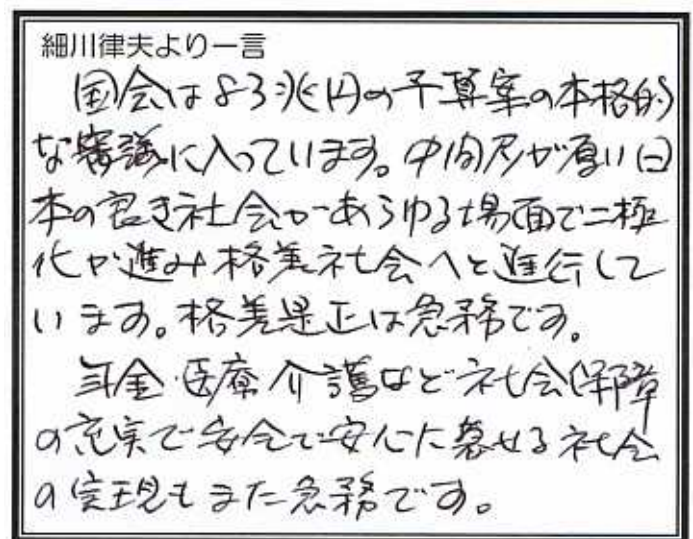 細川律夫より一言
国会は83兆円の予算案の本格的
な審議に入っています。中間層が厚い日
本の良き社会があらゆる場面で二極
化が進み格差社会へと進行して
います。格差是正は急務です。
年金・医療・介護など社会保障
の充実で安全で安心に暮せる社会
の実現もまた急務です。